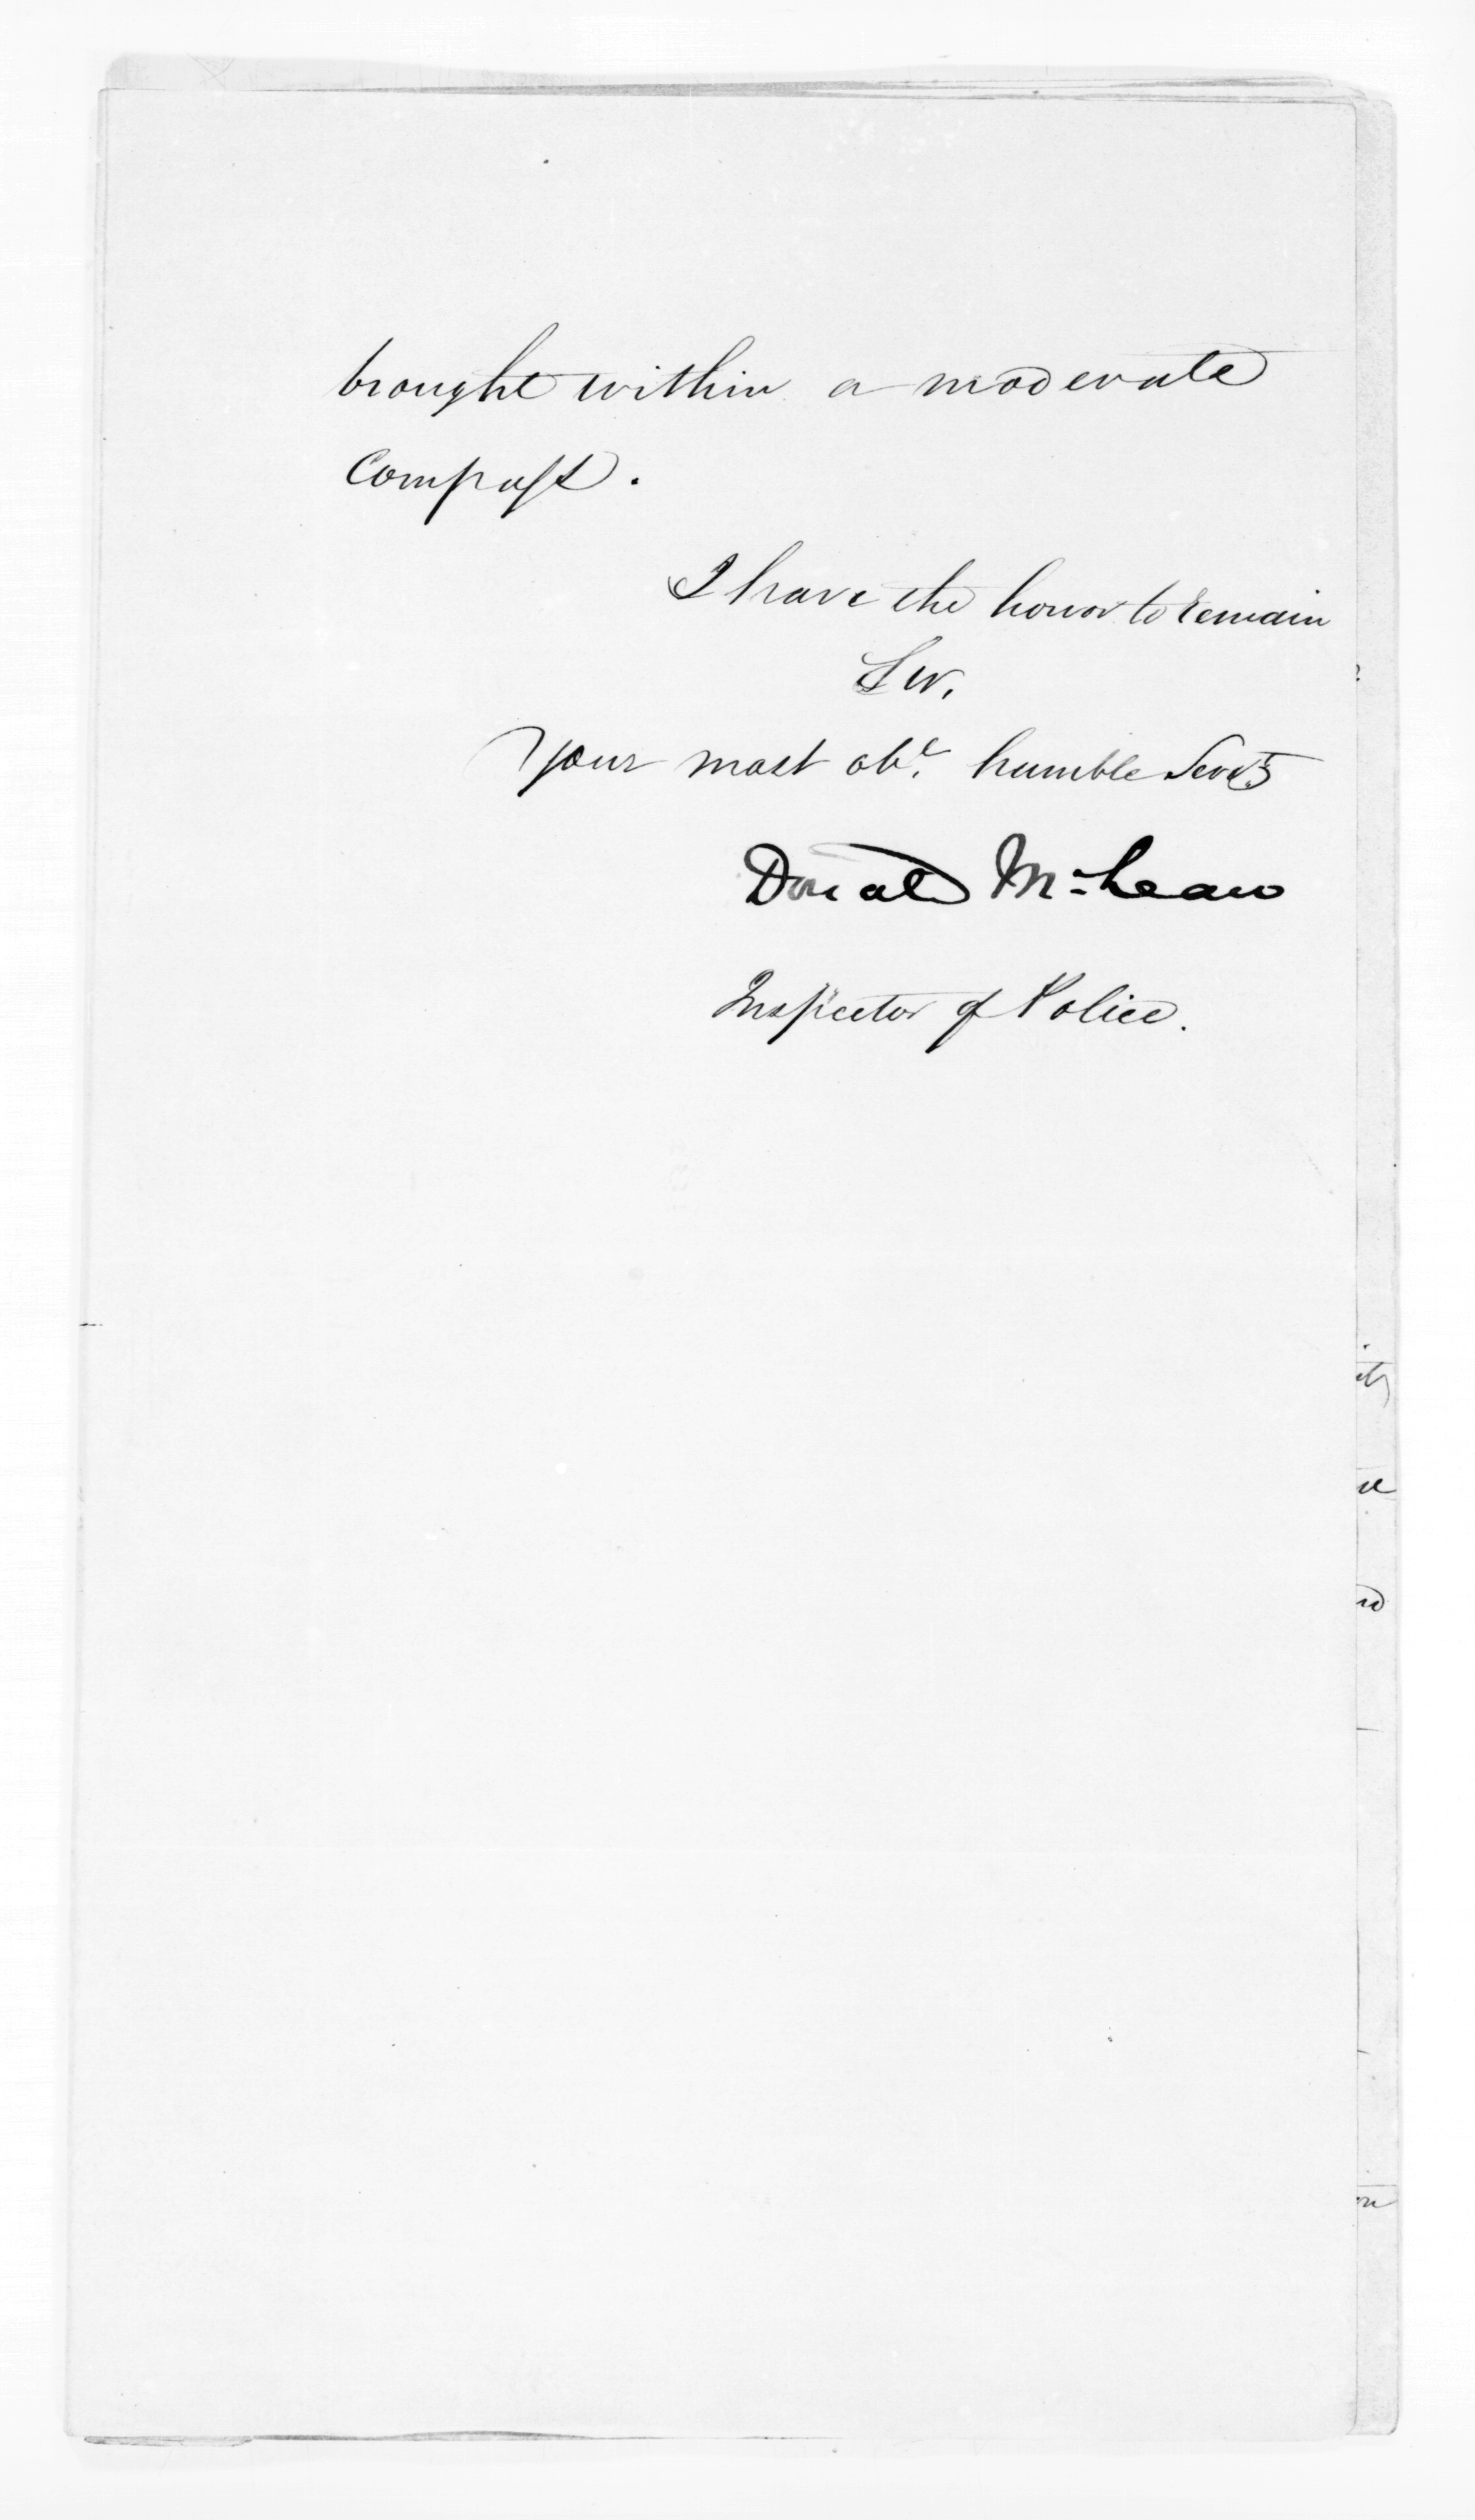 brought within a moderate
compass.
I have the honor to remain
Sir,
Your most obt. humble Servt.
Donald McLean
Inspector of Police.